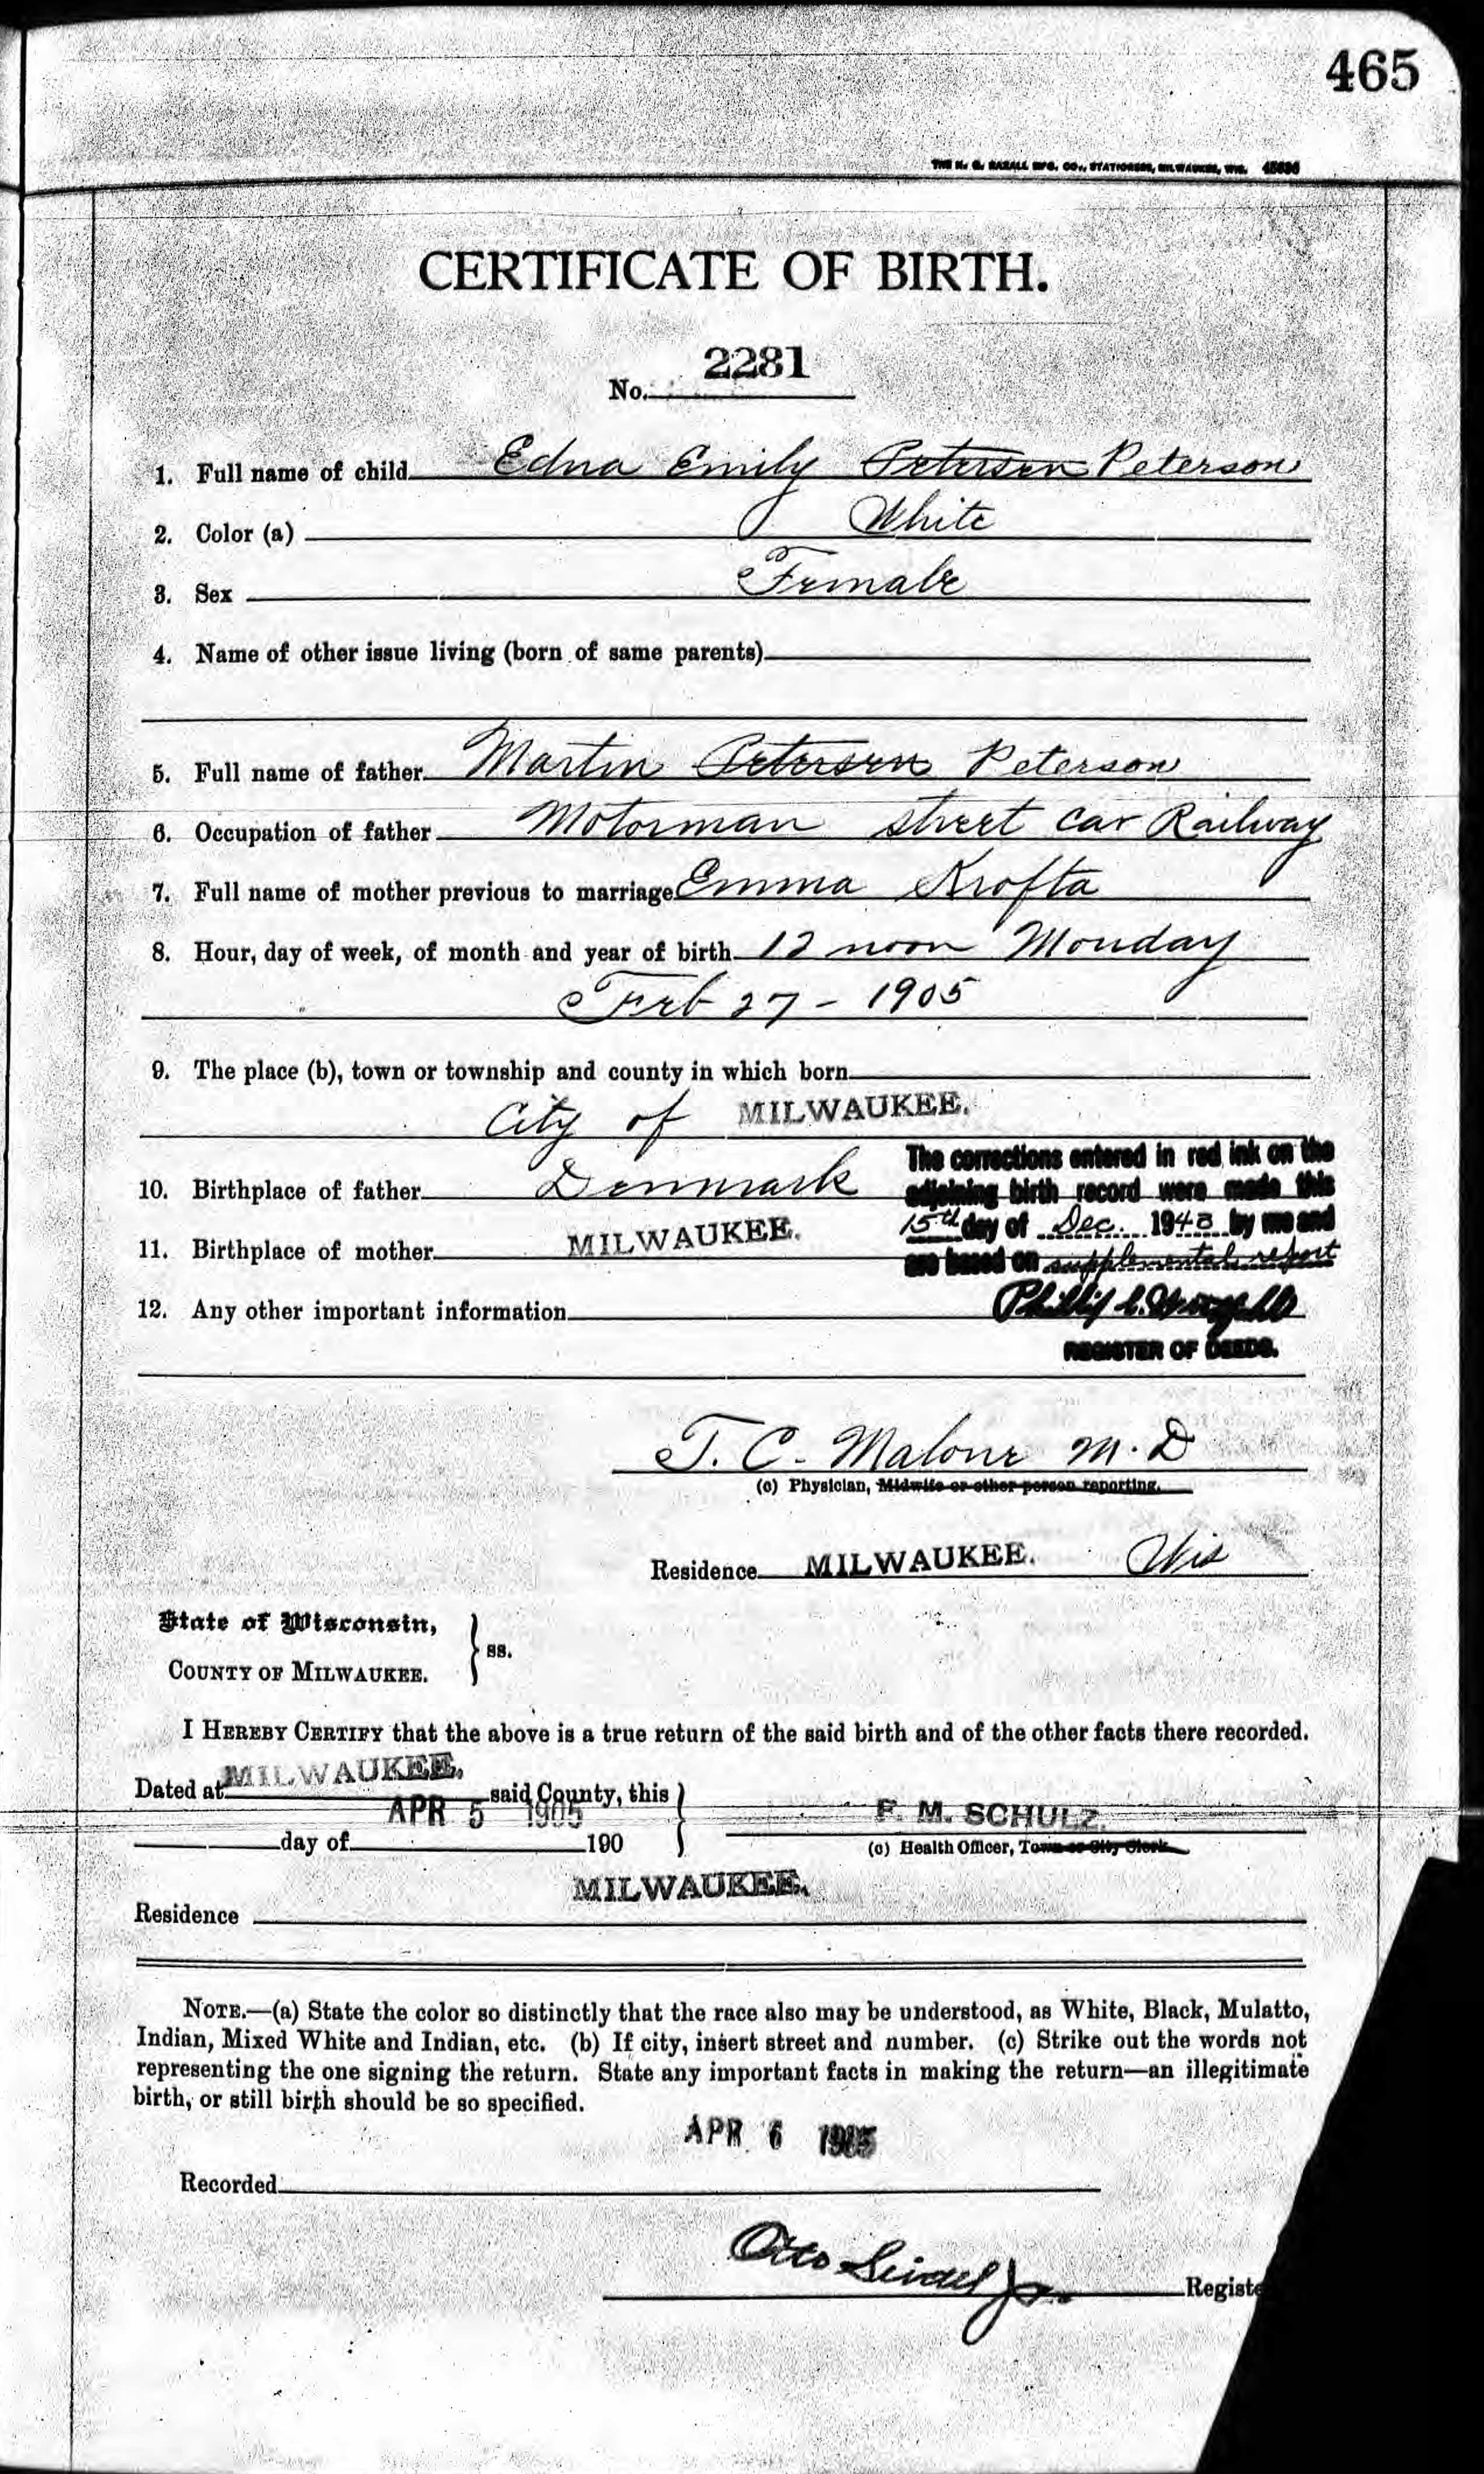 465
THE H. G. RAZALL MFG. CO., STATIONERS, MILWAUKEE, WIS.
CERTIFICATE OF BIRTH.
No. 2281
1. Full name of child Edna Emily Petersen Peterson
2. Color (a) White
3. Sex Female
4. Name of other issue living (born of same parents)
5. Full name of father Martin Petersen Peterson
6. Occupation of father Motorman street car Railway
7. Full name of mother previous to marriage Emma Krofta
8. Hour, day of week, of month and year of birth 12 noon Monday
Feb 27 - 1905
9. The place (b), town or township and county in which born
City of MILWAUKEE.
The corrections entered in red ink on the
10. Birthplace of father Denmark adjoining birth record were made this
15th day of Dec. 1948 by me and
11. Birthplace of mother MILWAUKEE. are based on supplemental report
12. Any other important information Phillip C.
REGISTER OF DEEDS.
T. C. Malone M. D
(c) Physician, Midwife or other person reporting.
Residence MILWAUKEE. Wis
State of Wisconsin,
COUNTY OF MILWAUKEE. } ss.
I HEREBY CERTIFY that the above is a true return of the said birth and of the other facts there recorded.
Dated at MILWAUKEE. said County, this
APR 5 1905 F. M. SCHULZ.
day of 190 (c) Health Officer, Town or City Clerk.
MILWAUKEE.
Residence
NOTE.—(a) State the color so distinctly that the race also may be understood, as White, Black, Mulatto,
Indian, Mixed White and Indian, etc. (b) If city, insert street and number. (c) Strike out the words not
representing the one signing the return. State any important facts in making the return—an illegitimate
birth, or still birth should be so specified.
APR 6 1905
Recorded
Otto Seidel Jr.
Registe